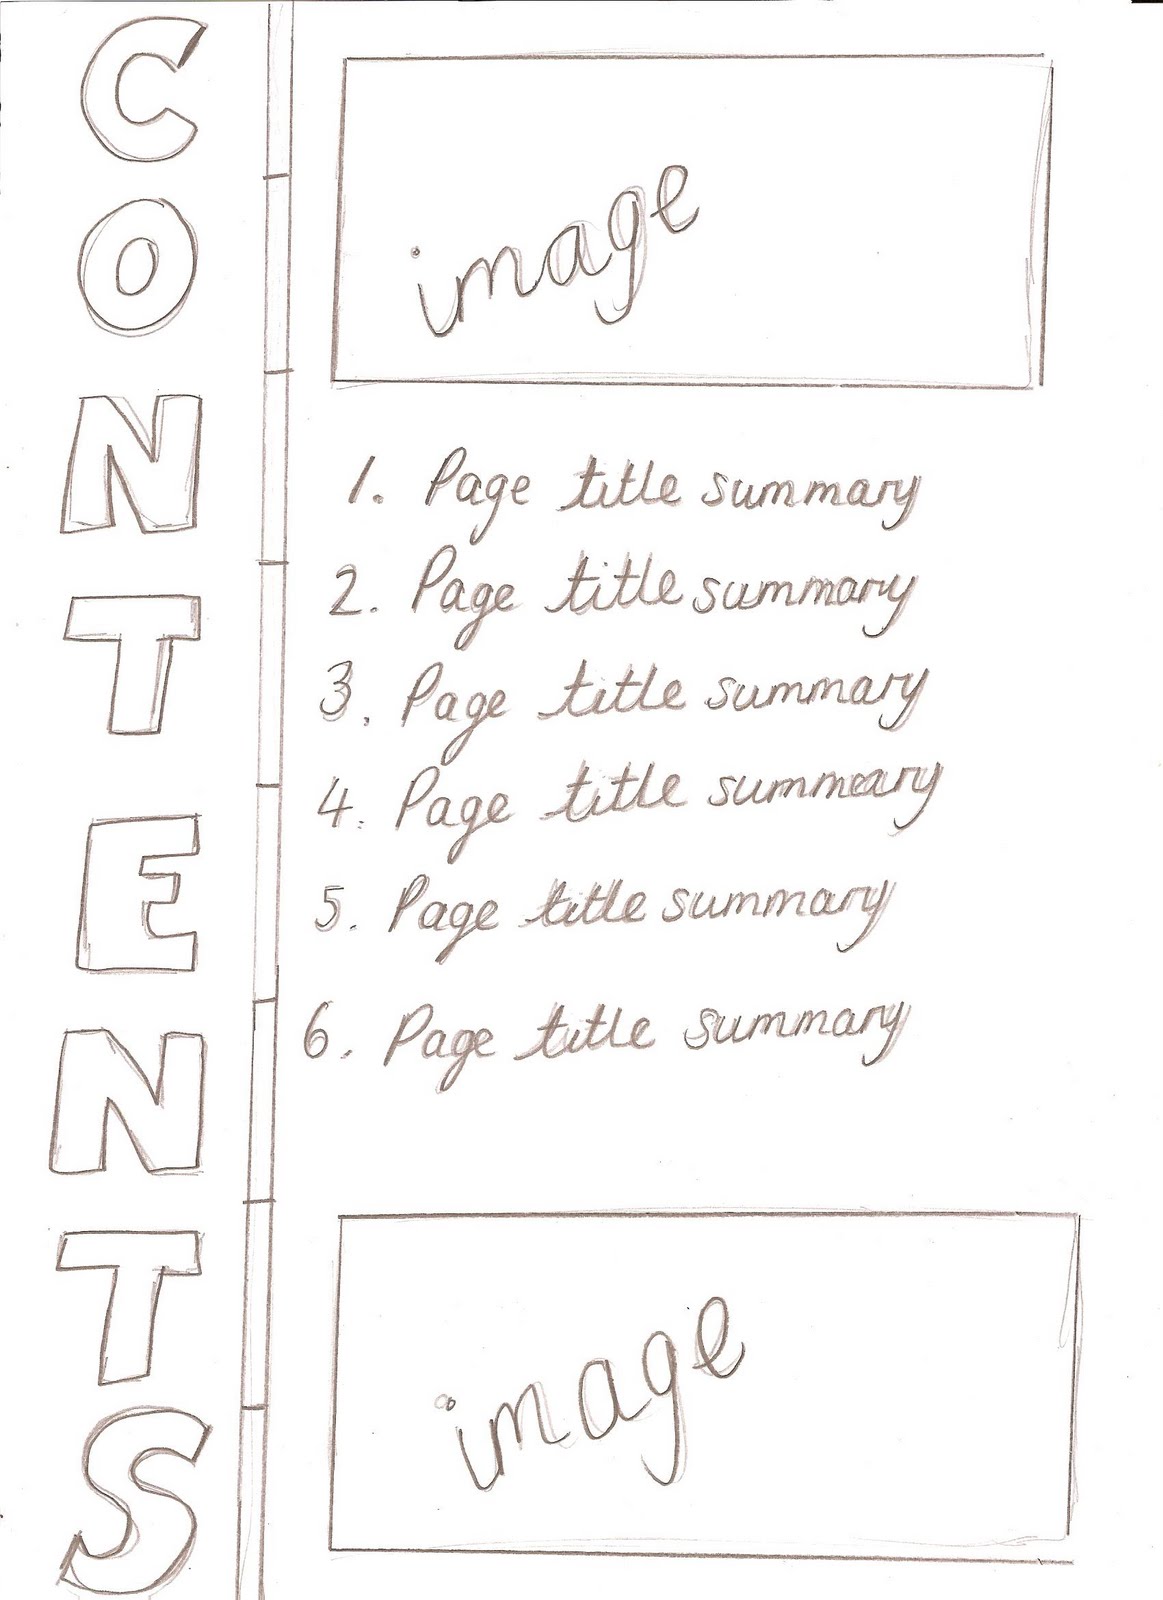 CONTENTS
image
1. Page title summary
2. Page title summary
3. Page title summary
4. Page title summary
5. Page title summary
6. Page title summary
image